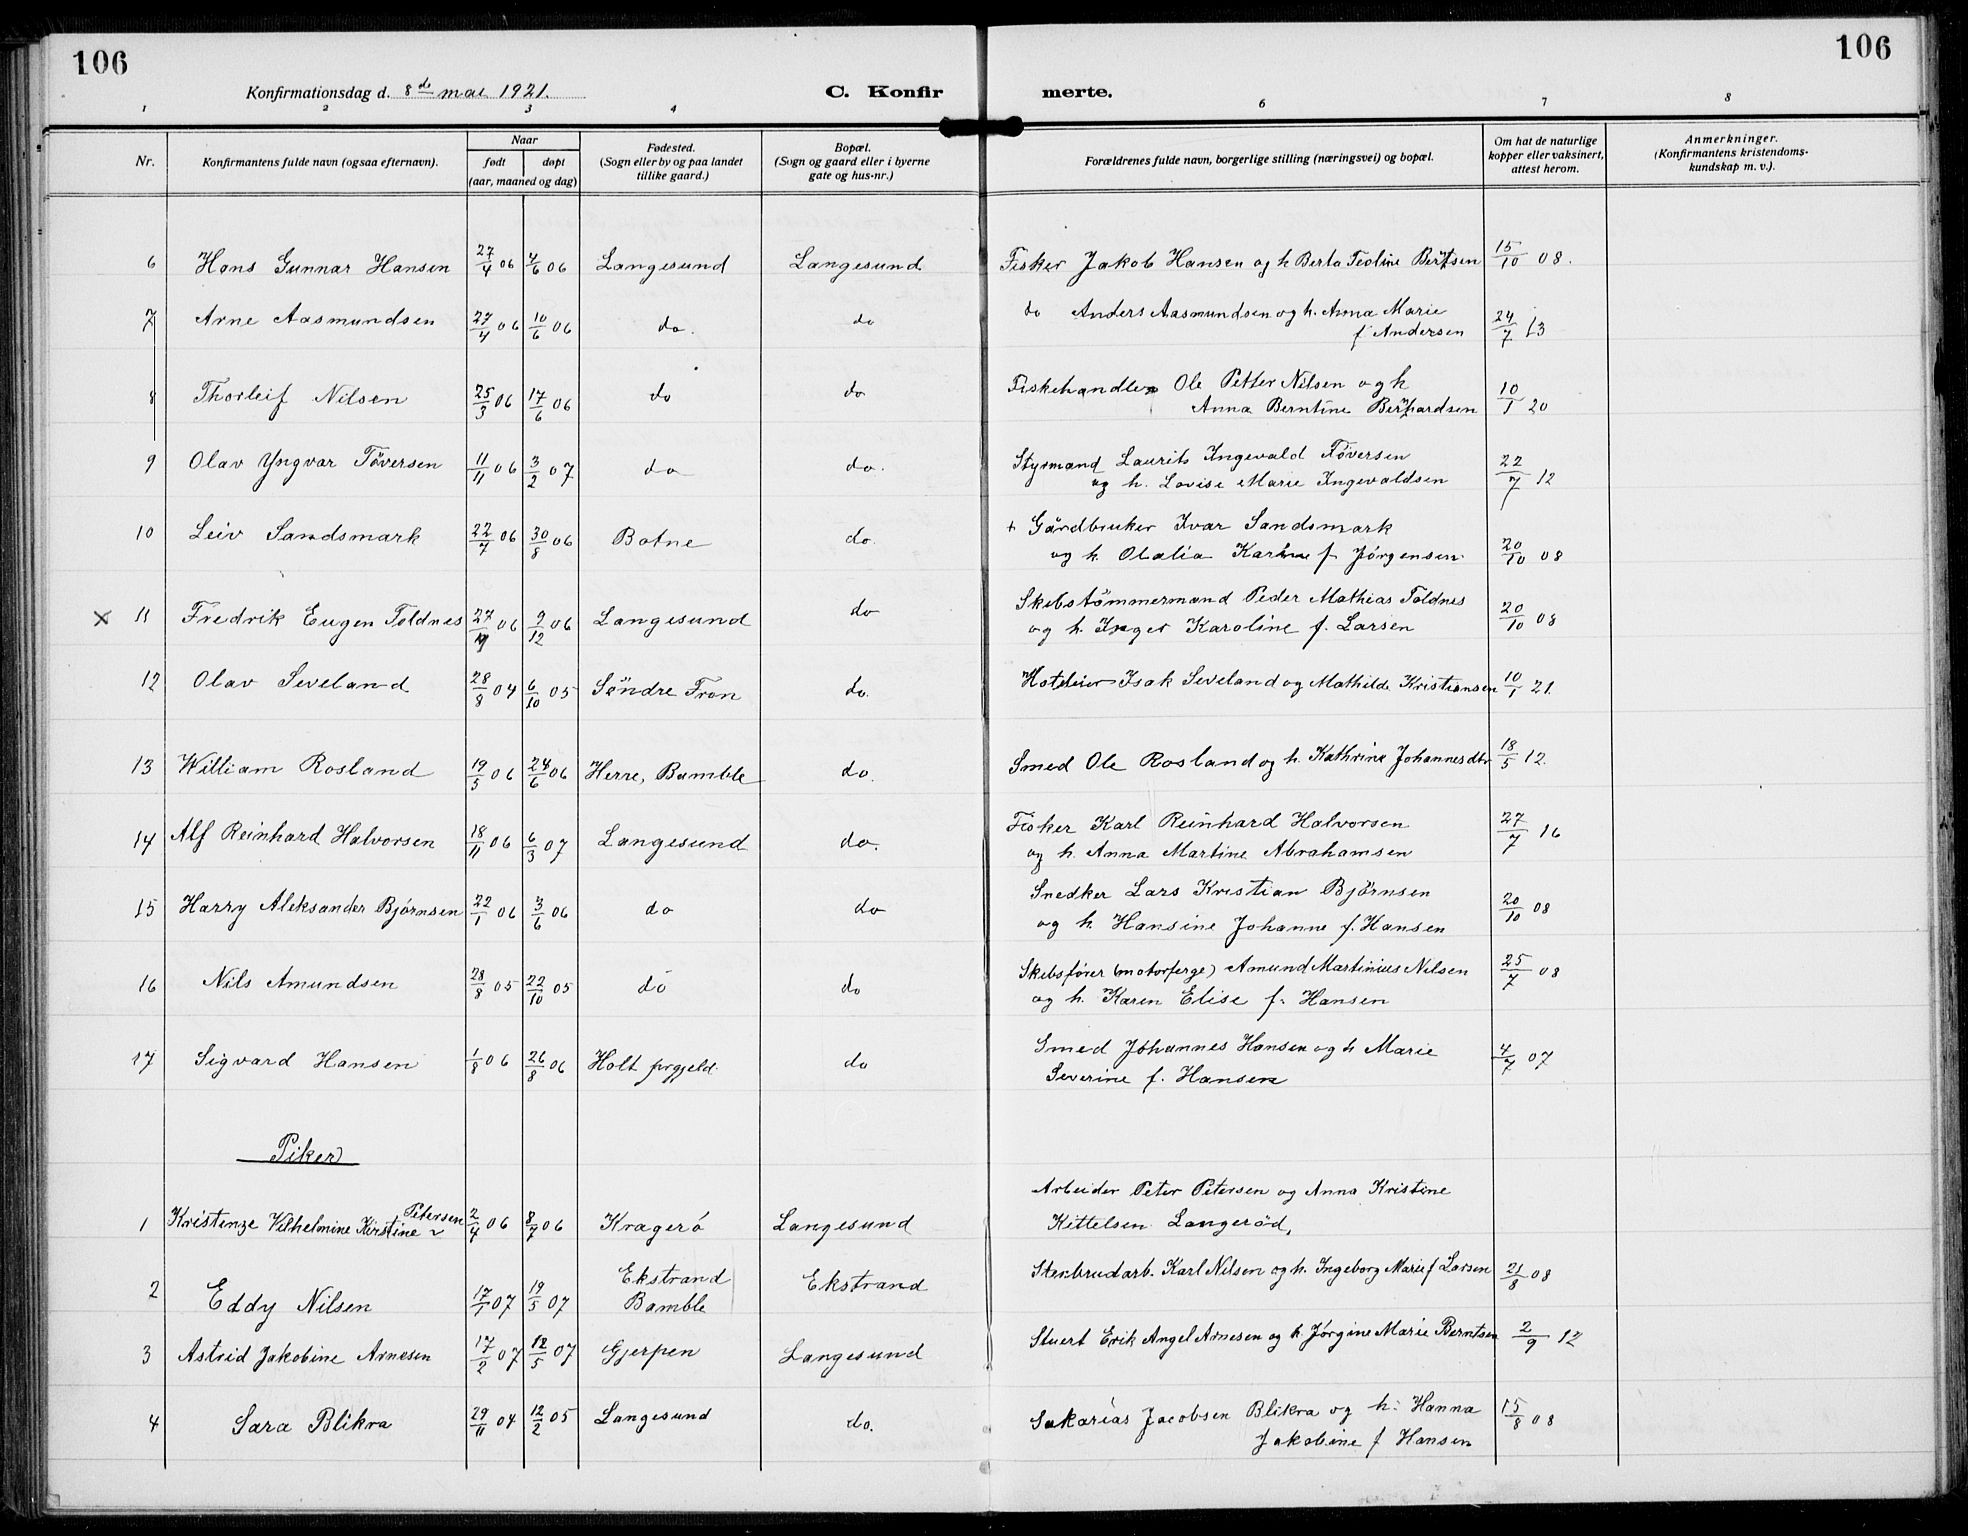 106
106
Konfirmationsdag d. 8de mai 1921.
C. Konfirmerte.
1 2 3 4 6 7 8
Nr.
Konfirmantens fulde navn (ogsaa efternavn).
Naar
født
døpt
(aar, maaned og dag)
Fødested.
(Sogn eller by og paa landet
tillike gaard.)
Bopæl.
(Sogn og gaard eller i byerne
gate og hus-nr.)
Forældrenes fulde navn, borgerlige stilling (næringsvei) og bopæl.
Om hat de naturlige
kopper eller vaksinert,
attest herom.
Anmerkninger.
(Konfirmantens kristendoms-
kundskap m. v.).
6 Hans Gunnar Hansen 27/4 06 4/6 06 Langesund Langesund Fisker Jakob Hansen og h Berta Teoline Berntsen 15/10 08.
7 Arne Aasmundsen 27/4 06 10/6 06 do. do do Anders Aasmundsen og h. Anna Marie
f Andersen 24/7 13
8 Thorleif Nilsen 25/3 06 17/6 06 do do Fiskehandler Ole Petter Nilsen og h
Anna Berntine Bernhardsen 10/1 20
9 Olav Yngvar Töversen 11/11 06 3/2 07 do do. Styrmand Laurits Ingevald Töversen
og h. Lovise Marie Ingevaldsen 22/7 12
10 Leiv Sandsmark 22/7 06 30/8 06 Botne do. + Gårdbruker Ivar Sandsmark
og h. Olalia Karine f Jørgensen 20/10 08
x 11 Fredrik Eugen Toldnes 27/ 06 9/12 06 Langesund do Skibstömmermand Peder Mathias Toldnes
og h. Inger Karoline f. Larsen 20/10 08
12 Olav Seveland 28/8 04 6/10 05 Söndre Fron do. Hoteleier Isak Seveland og Mathilde Kristiansen 10/1 21.
13 William Rosland 19/5 06 24/6 06 Herre, Bamble do. Smed Ole Rosland og h. Kathrine Johannesdtr 18/5 12.
14 Alf Reinhard Halvorsen 18/11 06 6/3 07 Langesund do. Fisker Karl Reinhard Halvorsen
og h. Anna Martine Abrahamsen 27/7 16
15 Harry Aleksander Bjørnsen 22/1 06 3/6 06 do do Snedker Lars Kristian Bjørnsen
og h. Hansine Johanne f. Hansen 20/10 08
16 Nils Amundsen 28/8 05 22/10 05 do do Skibsfører (motorferge) Amund Martinius Nilsen
og h. Karen Elise f. Hansen 25/7 08
17 Sigvard Hansen 1/8 06 26/8 06 Holt prgjeld. do Smed Johannes Hansen og h Marie
Severine f. Hansen 4/7 07
Piker
1 Kristenze Vilhelmine Kirstine Petersen 2/4 06 8/7 06 Kragerö Langesund Arbeider Peter Petersen og Anna Kristine
Kittelsen Langeröd,
2 Eddy Nilsen 17/1 07 19/5 07 Ekstrand
Bamble Ekstrand Stenbrudarb. Karl Nilsen og h. Ingeborg Marie f Larsen 21/8 08
3 Astrid Jakobine Arnesen 17/2 07 12/5 07 Gjerpen Langesund Stuert Erik Angel Arnesen og h. Jørgine Marie Berntsen 2/9 12
4 Sara Blikra 29/11 04 12/2 05 Langesund do. Sakarias Jacobsen Blikra og h: Hanna
Jakobine f Hansen 15/8 08